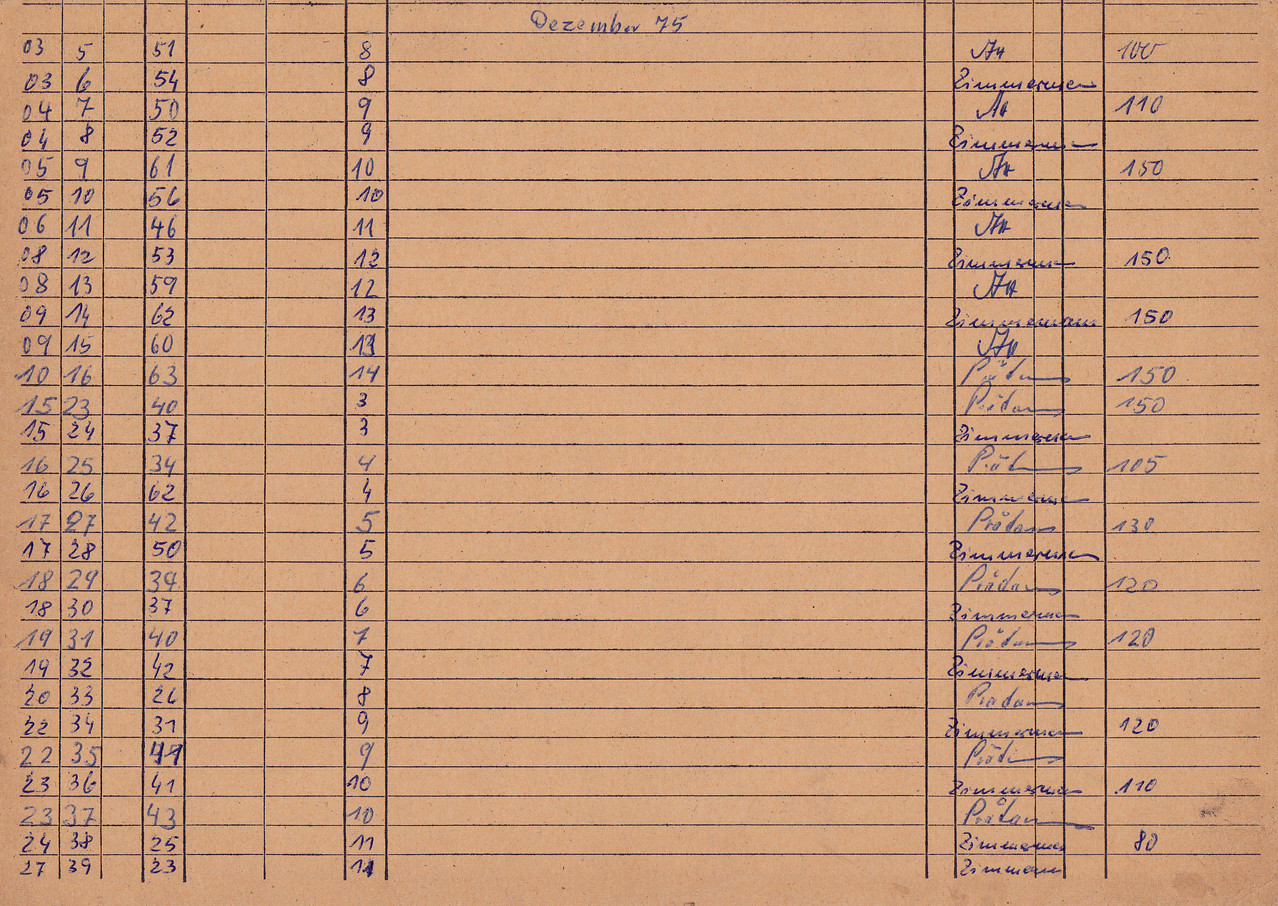 Dezember 75
03 5 51 8 100
03 6 54 8 Zimmermann
04 7 50 9 110
04 8 52 9 Zimmermann
05 9 61 10 150
05 10 56 10 Zimmermann
06 11 46 11
08 12 53 12 Zimmermann 150
08 13 59 12
09 14 62 13 Zimmermann 150
09 15 60 13
10 16 63 14 150
15 23 40 3 150
15 24 37 3 Zimmermann
16 25 34 4 105
16 26 62 4 Zimmermann
17 27 42 5 130
17 28 50 5 Zimmermann
18 29 39 6 120
18 30 37 6 Zimmermann
19 31 40 7 120
19 32 42 7 Zimmermann
20 33 26 8
22 34 31 9 Zimmermann 120
22 35 9
23 36 41 10 Zimmermann 110
23 37 43 10
24 38 25 11 Zimmermann 80
27 39 23 11 Zimmermann